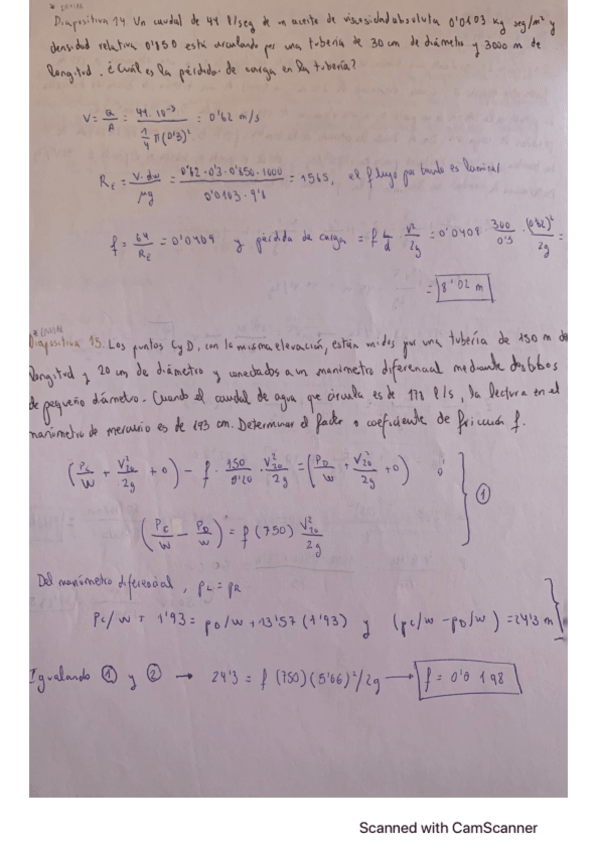 * ENVIAR
Diapositiva 14. Un caudal de 44 l/seg de un aceite de viscosidad absoluta 0'0103 kg seg/m² y
densidad relativa 0'850 está circulando por una tubería de 30 cm de diámetro y 3000 m de
longitud. ¿Cuál es la pérdida de carga en la tubería?
V = Q/A = 44·10⁻³ / (1/4 π(0'3)²) = 0'62 m/s
R_E = V·dw/μg = 0'62·0'3·0'850·1000 / 0'0103·9'8 = 1565, el flujo por tanto es laminar
f = 64/R_E = 0'0409 y pérdida de carga = f L/d V²/2g = 0'0409 · 300/0'3 · (0'62)²/2g =
= 8'02 m
* ENVIAR
Diapositiva 15. Los puntos C y D, con la misma elevación, están unidos por una tubería de 150 m de
longitud y 20 cm de diámetro y conectados a un manómetro diferencial mediante dos tubos
de pequeño diámetro. Cuando el caudal de agua que circula es de 178 l/s, la lectura en el
manómetro de mercurio es de 193 cm. Determinar el factor o coeficiente de fricción f.
(P_C/W + V²₂₀/2g + 0) - f · 150/0'20 · V²₂₀/2g = (P_D/W + V²₂₀/2g + 0)
(P_C/W - P_D/W) = f (750) V²₂₀/2g } ①
Del manómetro diferencial, p_L = p_R
P_C/W + 1'93 = p_D/W + 13'57 (1'93) y (p_C/w - p_D/w) = 24'3 m
Igualando ① y ② → 24'3 = f (750) (5'66)²/2g → f = 0'0198
Scanned with CamScanner